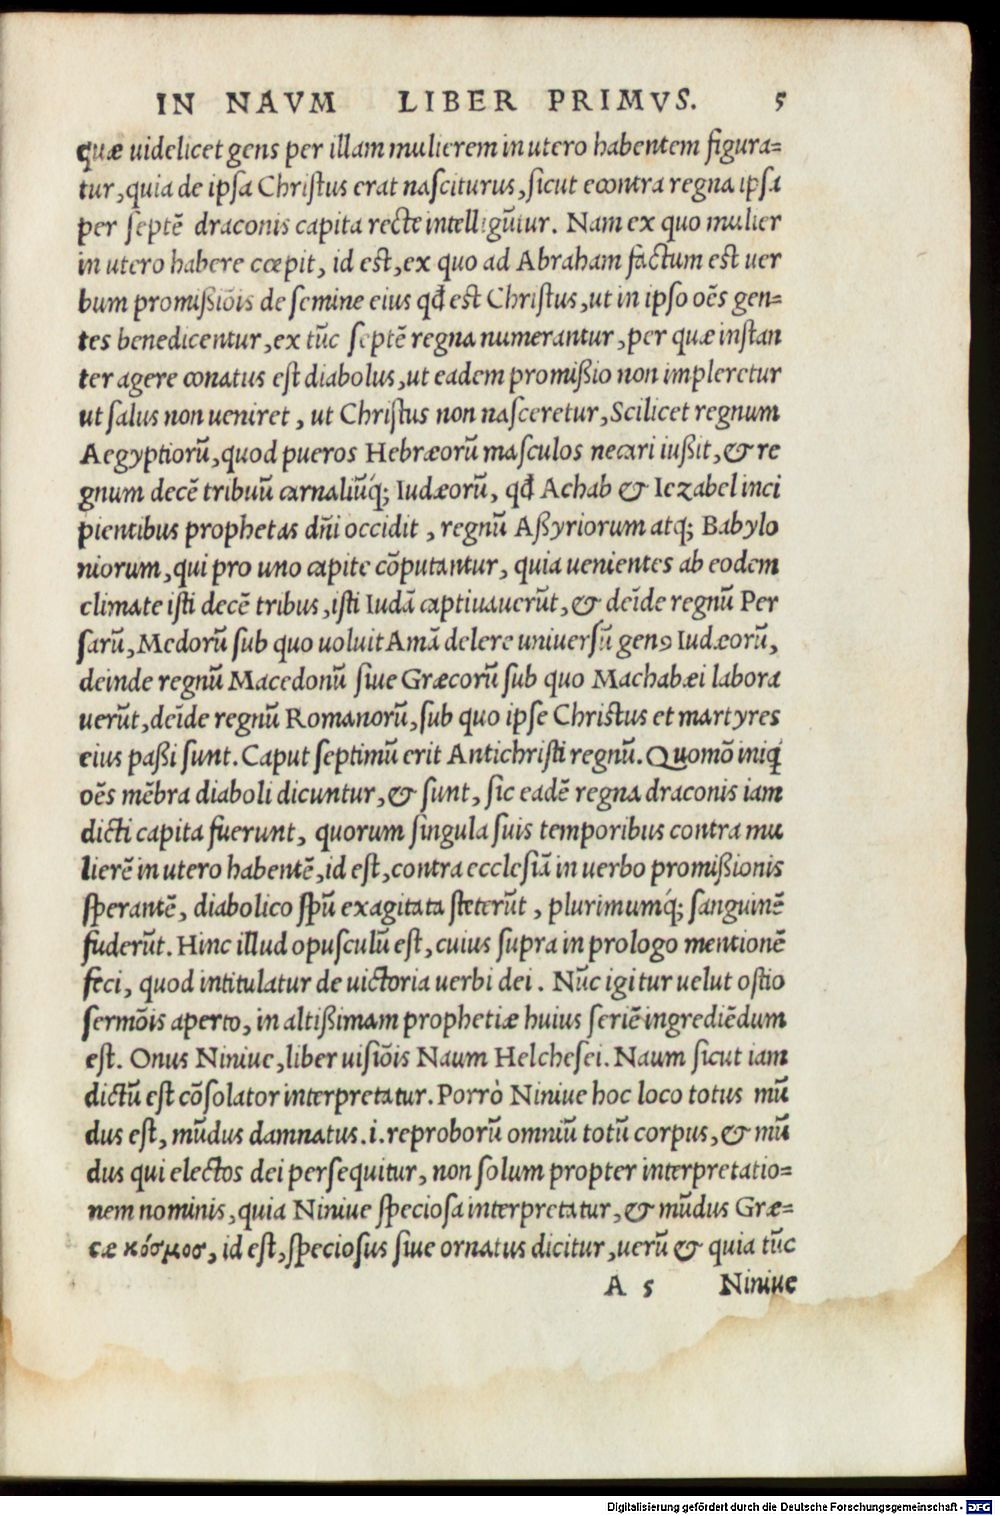 IN NAVM LIBER PRIMVS. 5
quæ uidelicet gens per illam mulierem in utero habentem figura=
tur, quia de ipsa Chriſtus erat naſciturus, ſicut econtra regna ipſa
per ſeptē draconis capita recte intelligūtur. Nam ex quo mulier
in utero habere cœpit, id eſt, ex quo ad Abraham factum eſt uer
bum promißiōis de ſemine eius qđ eſt Chriſtus, ut in ipſo oēs gen=
tes benedicentur, ex tūc ſeptē regna numerantur, per quæ inſtan
ter agere conatus eſt diabolus, ut eadem promißio non impleretur
ut ſalus non ueniret, ut Chriſtus non naſceretur, Scilicet regnum
Aegyptiorū, quod pueros Hebræorū maſculos necari iußit, & re
gnum decē tribuū carnaliūq́; Iudæorū, qđ Achab & Iezabel inci
pientibus prophetas dñi occidit, regnū Aßyriorum atq; Babylo
niorum, qui pro uno capite cōputantur, quia uenientes ab eodem
climate iſti decē tribus, iſti Iudā captiuauerūt, & deīde regnū Per
ſarū, Medorū ſub quo uoluit Amā delere uniuerſū genꝰ Iudæorū,
deinde regnū Macedonū ſiue Græcorū ſub quo Machabæi labora
uerūt, deīde regnū Romanorū, ſub quo ipſe Chriſtus et martyres
eius paßi ſunt. Caput ſeptimū erit Antichriſti regnū. Quomō iniq́
oēs mēbra diaboli dicuntur, & ſunt, ſic eadē regna draconis iam
dicti capita fuerunt, quorum ſingula ſuis temporibus contra mu
lierē in utero habentē, id eſt, contra eccleſiā in uerbo promißionis
ſperantē, diabolico ſpū exagitata ſteterūt, plurimumq́; ſanguinē
fuderūt. Hinc illud opuſculū eſt, cuius ſupra in prologo mentionē
feci, quod intitulatur de uictoria uerbi dei. Nūc igitur uelut oſtio
ſermōis aperto, in altißimam prophetiæ huius ſeriē ingrediēdum
eſt. Onus Niniue, liber uiſiōis Naum Helcheſei. Naum ſicut iam
dictū eſt cōſolator interpretatur. Porrò Niniue hoc loco totus mū
dus eſt, mūdus damnatus .i. reproborū omniū totū corpus, & mū
dus qui electos dei perſequitur, non ſolum propter interpretatio=
nem nominis, quia Niniue ſpecioſa interpretatur, & mūdus Græ=
cæ κόσμοσ, id eſt, ſpecioſus ſiue ornatus dicitur, uerū & quia tūc
A 5 Niniue
Digitalisierung gefördert durch die Deutsche Forschungsgemeinschaft - DFG